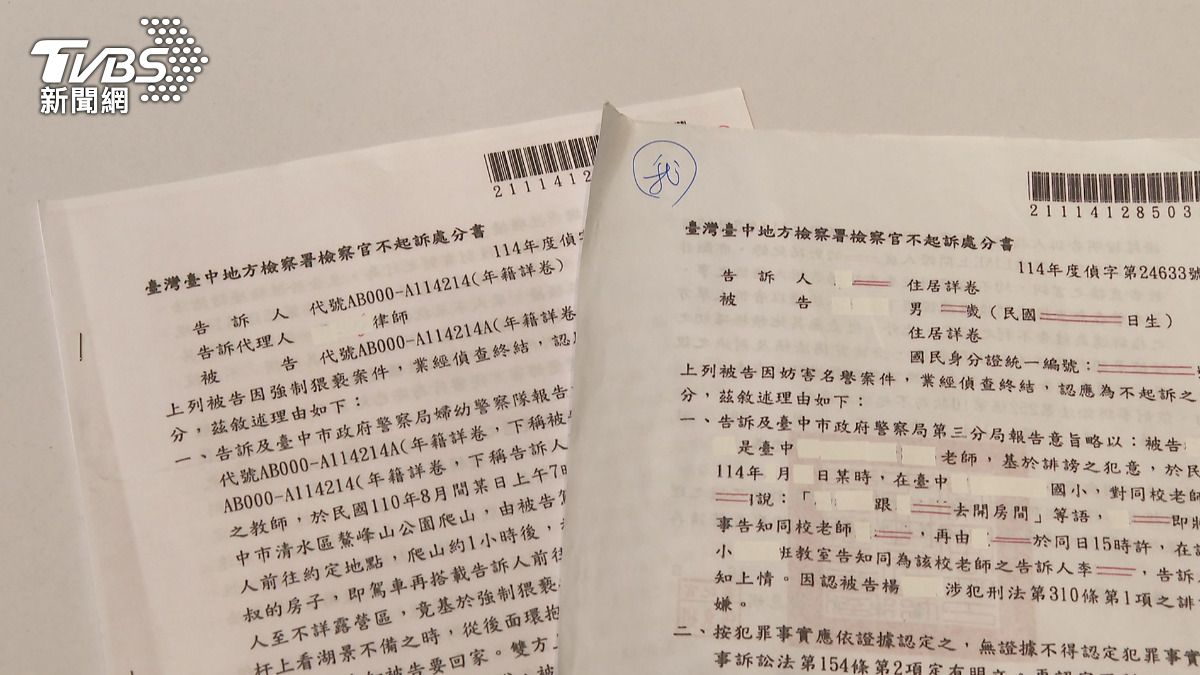 TVBS
新聞網
211412
臺灣臺中地方檢察署檢察官不起訴處分書
114年度偵字
告 訴 人 代號AB000-A114214(年籍詳卷)
告訴代理人 律師
被 告 代號AB000-A114214A(年籍詳卷
上列被告因強制猥褻案件，業經偵查終結，認
分，茲敘述理由如下：
一、告訴及臺中市政府警察局婦幼警察隊報告
代號AB000-A114214A(年籍詳卷，下稱被
AB000-A114214(年籍詳卷，下稱告訴人
之教師，於民國110年8月間某日上午7時
中市清水區鰲峰山公園爬山，由被告
人前往約定地點，爬山約1小時後，
叔的房子，即駕車再搭載告訴人前往
人至不詳露營區，竟基於強制猥褻
杆上看湖景不備之時，從後面環抱
被告要回家。雙方
我
21114128503
臺灣臺中地方檢察署檢察官不起訴處分書
114年度偵字第24633號
告 訴 人 住居詳卷
被 告 男 歲（民國 日生）
住居詳卷
國民身分證統一編號：
上列被告因妨害名譽案件，業經偵查終結，認應為不起訴之
分，茲敘述理由如下：
一、告訴及臺中市政府警察局第三分局報告意旨略以：被告
是臺中 老師，基於誹謗之犯意，於民
114年 月 日某時，在臺中 國小，對同校老師
說：「 跟 去開房間」等語， 即將
事告知同校老師 ，再由 於同日15時許，在
小 班教室告知同為該校老師之告訴人李 ，告訴
知上情。因認被告楊 涉犯刑法第310條第1項之誹
嫌。
二、按犯罪事實應依證據認定之，無證據不得認定犯罪事實
事訴訟法第154條第2項定有明文。